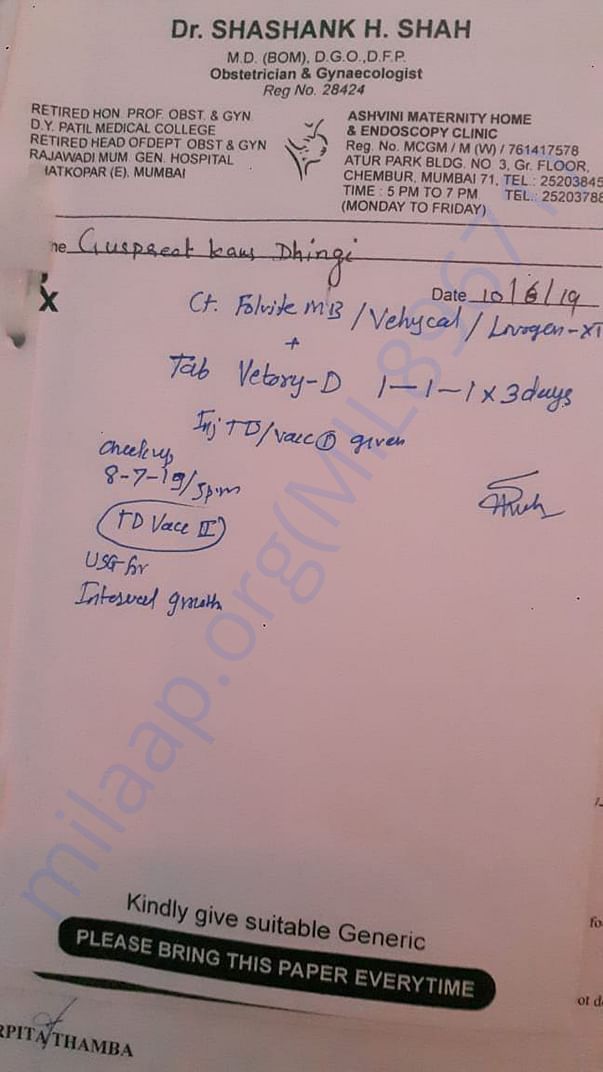 Dr. SHASHANK H. SHAH
M.D. (BOM), D.G.O.,D.F.P.
Obstetrician & Gynaecologist
Reg No. 28424
RETIRED HON. PROF. OBST. & GYN
D.Y. PATIL MEDICAL COLLEGE
RETIRED HEAD OFDEPT OBST & GYN
RAJAWADI MUM. GEN. HOSPITAL
ATKOPAR (E). MUMBAI
ASHVINI MATERNITY HOME
& ENDOSCOPY CLINIC
Reg. No. MCGM / M (W) / 761417578
ATUR PARK BLDG. NO. 3, Gr. FLOOR,
CHEMBUR, MUMBAI 71, TEL.: 25203845
TIME : 5 PM TO 7 PM TEL.: 25203788
(MONDAY TO FRIDAY)
ne Guspreet kaus Dhingi
Date 10/6/19
x
Ct. Folvite MB / Vehycal / Livogen-XT
+
Tab Vetory-D 1-1-1 x 3 days
Inj TD/vacc ① given
checkup
8-7-19/5pm
TD Vacc II
USG for
Interval growth
Kindly give suitable Generic
PLEASE BRING THIS PAPER EVERYTIME
RPITA THAMBA
fo
ot d
milaap.org(MIL89671